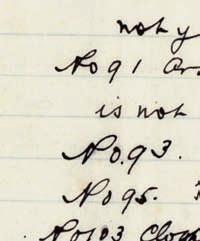 not y
No 91 Ar
is not
No. 93.
No 95.
No 103 Clo